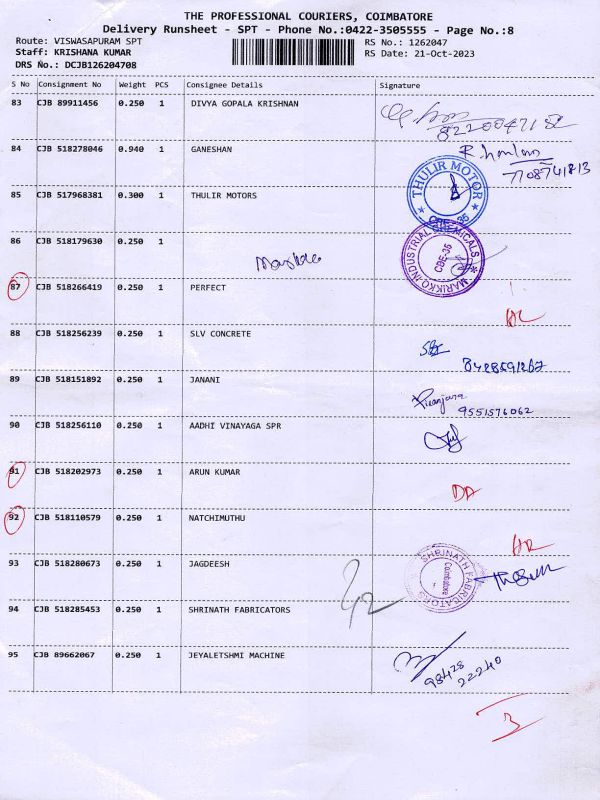 THE PROFESSIONAL COURIERS, COIMBATORE
Delivery Runsheet - SPT - Phone No.:0422-3505555 - Page No.:8
Route: VISWASAPURAM SPT
Staff: KRISHANA KUMAR
DRS No.: DCJB126204708
RS No.: 1262047
RS Date: 21-Oct-2023
S No Consignment No Weight PCS Consignee Details Signature
83 CJB 89911456 0.250 1 DIVYA GOPALA KRISHNAN
84 CJB 518278046 0.940 1 GANESHAN
7708741813
85 CJB 517968381 0.300 1 THULIR MOTORS
THULIR MOTOR
CBE-35
86 CJB 518179630 0.250 1
MARIKKO INDUSTRIAL CHEMICALS
CBE-35
87 CJB 518266419 0.250 1 PERFECT
88 CJB 518256239 0.250 1 SLV CONCRETE
89 CJB 518151892 0.250 1 JANANI
9551576062
90 CJB 518256110 0.250 1 AADHI VINAYAGA SPR
91 CJB 518202973 0.250 1 ARUN KUMAR
92 CJB 518110579 0.250 1 NATCHIMUTHU
93 CJB 518280673 0.250 1 JAGDEESH
SHRINATH FABRICATORS
Coimbatore
94 CJB 518285453 0.250 1 SHRINATH FABRICATORS
95 CJB 89662067 0.250 1 JEYALETSHMI MACHINE
98428
22240
3